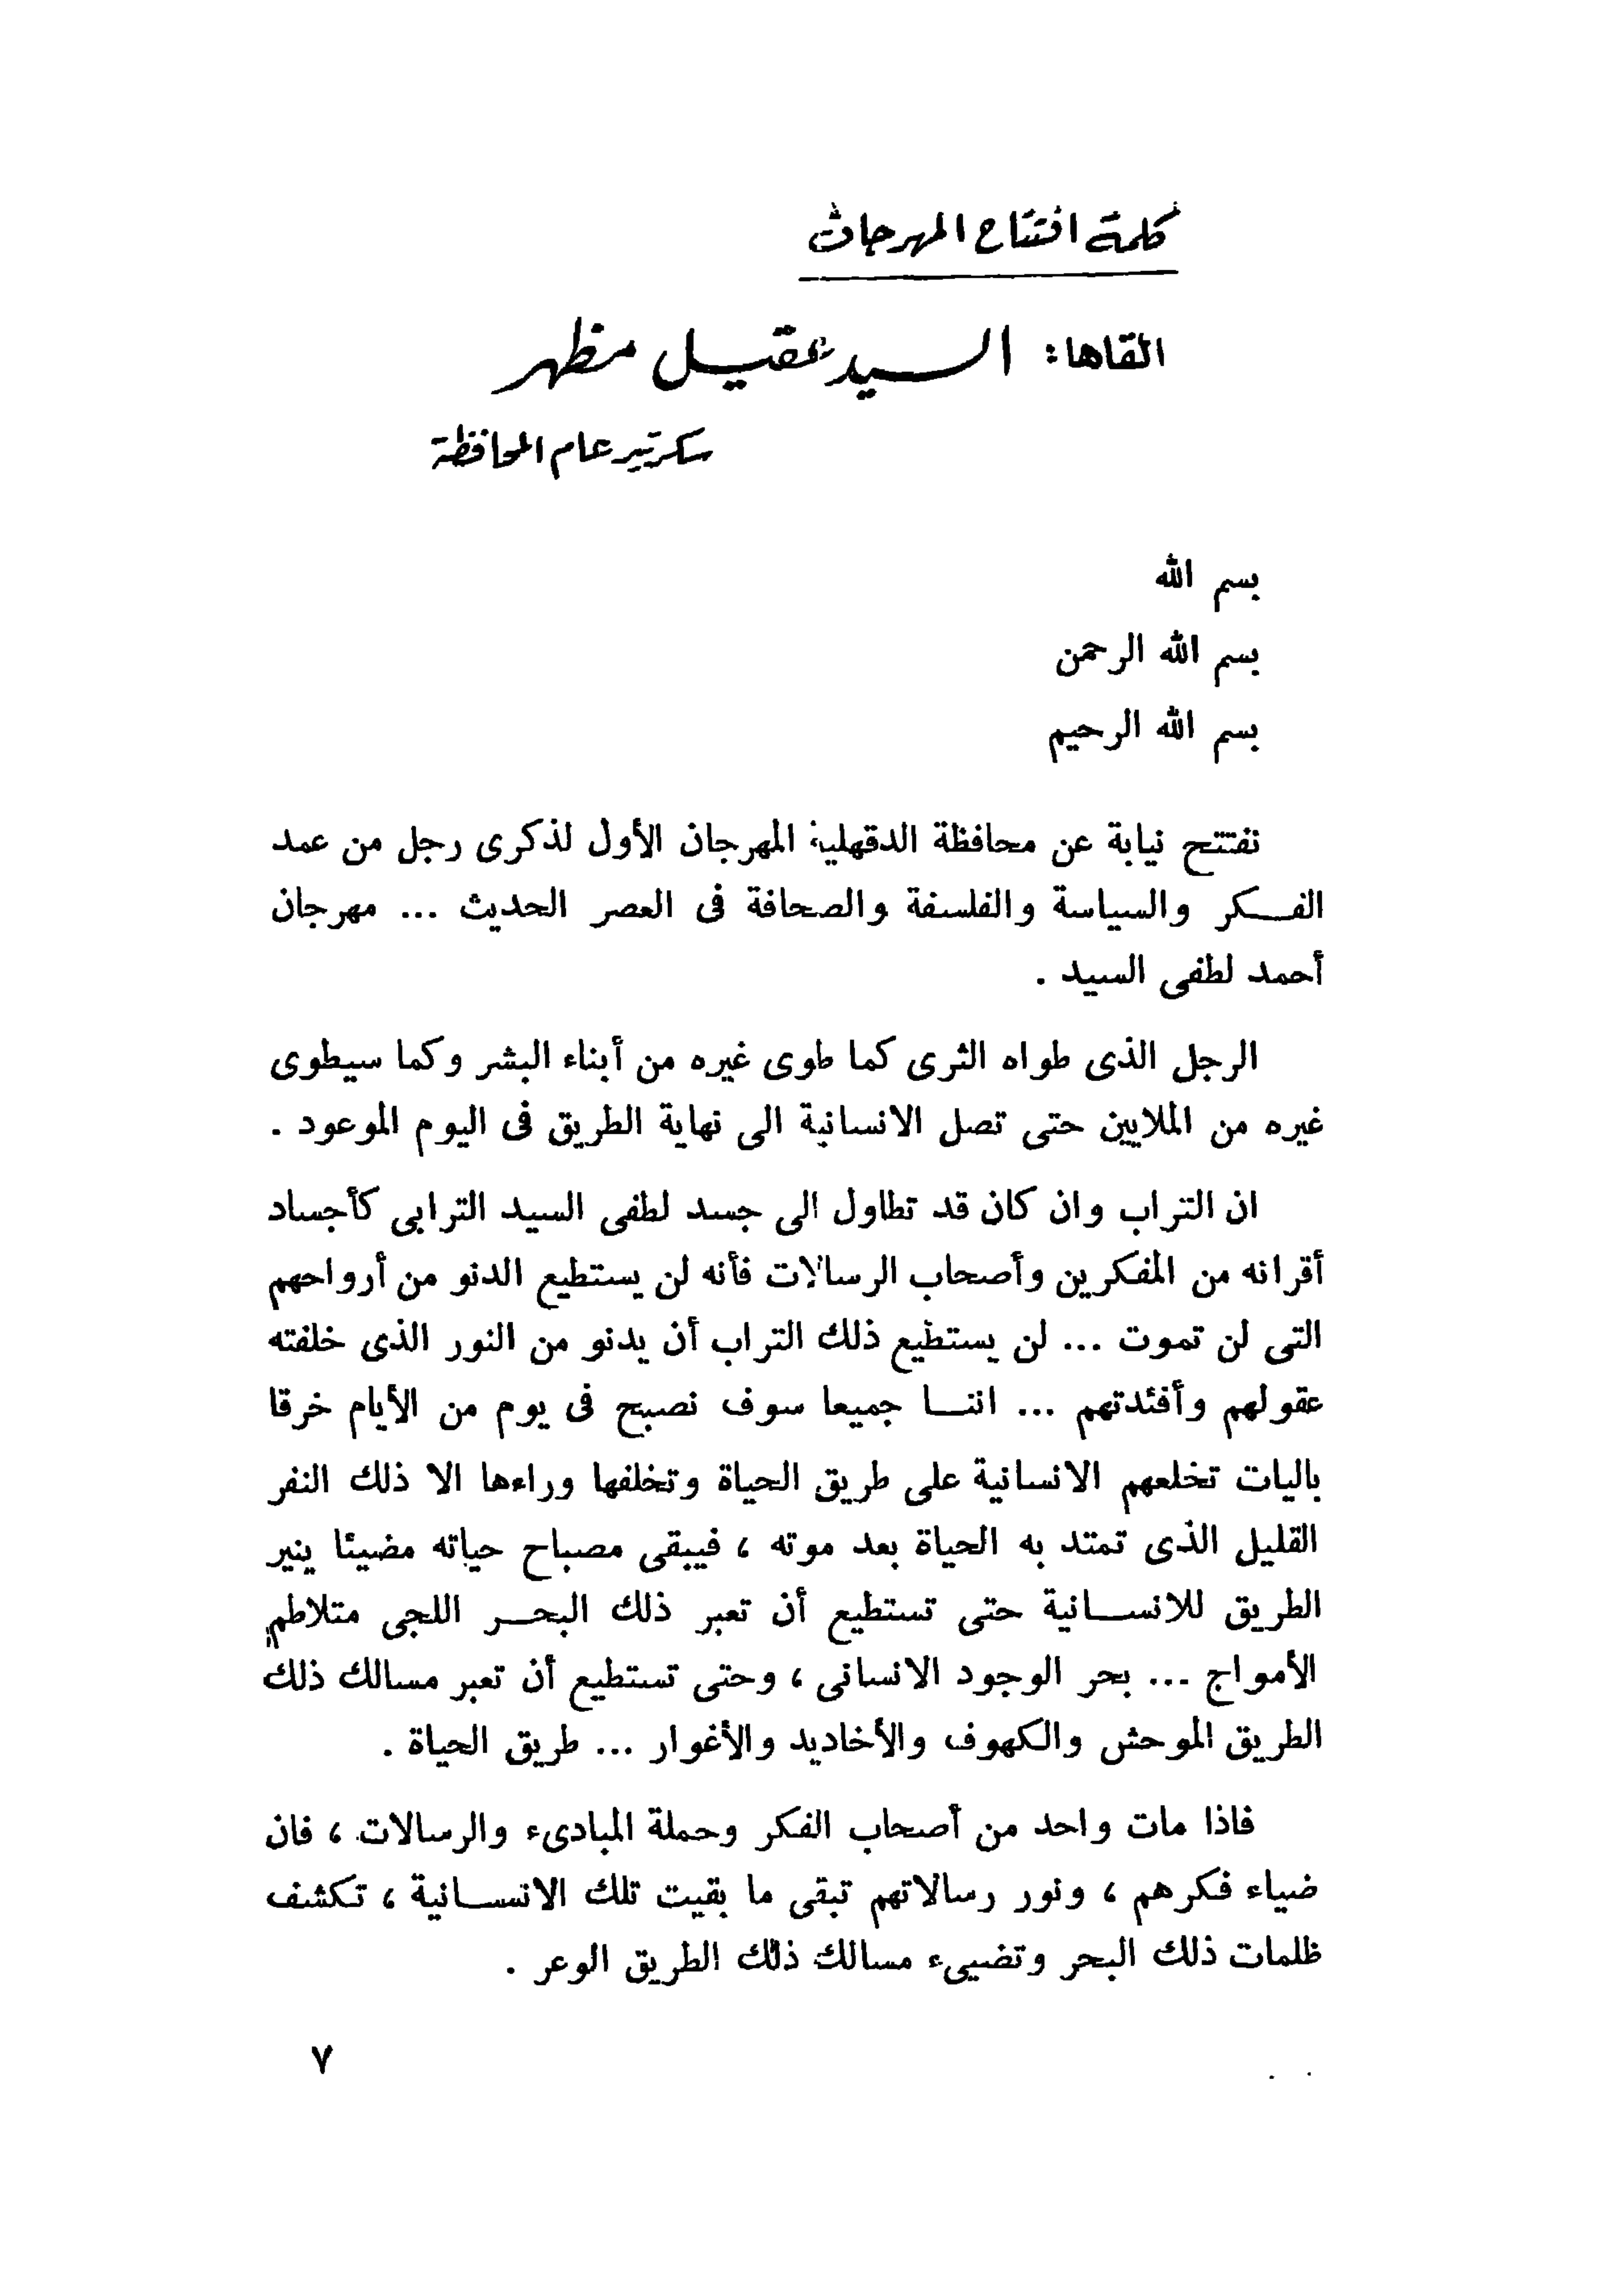 كلمة افتتاح المهرجان
القاها: السيد عقيل مظهر
سكرتير عام المحافظة
بسم الله
بسم الله الرحمن
بسم الله الرحيم
نفتتح نيابة عن محافظة الدقهلية المهرجان الأول لذكرى رجل من عمد
الفـكر والسياسة والفلسفة والصحافة فى العصر الحديث ... مهرجان
أحمد لطفى السيد .
الرجل الذى طواه الثرى كما طوى غيره من أبناء البشر وكما سيطوى
غيره من الملايين حتى تصل الانسانية الى نهاية الطريق فى اليوم الموعود .
ان التراب وان كان قد تطاول الى جسد لطفى السيد الترابى كأجساد
أقرانه من المفكرين وأصحاب الرسالات فأنه لن يستطيع الدنو من أرواحهم
التى لن تموت ... لن يستطيع ذلك التراب أن يدنو من النور الذى خلفته
عقولهم وأفئدتهم ... اننـا جميعا سوف نصبح فى يوم من الأيام خرقا
باليات تخلعهم الانسانية على طريق الحياة وتخلفها وراءها الا ذلك النفر
القليل الذى تمتد به الحياة بعد موته ، فيبقى مصباح حياته مضيئا ينير
الطريق للانسـانية حتى تستطيع أن تعبر ذلك البحـر اللجى متلاطم
الأمواج ... بحر الوجود الانسانى ، وحتى تستطيع أن تعبر مسالك ذلك
الطريق الموحش والكهوف والأخاديد والأغوار ... طريق الحياة .
فاذا مات واحد من أصحاب الفكر وحملة المبادىء والرسالات ، فان
ضياء فكرهم ، ونور رسالاتهم تبقى ما بقيت تلك الانسـانية ، تكشف
ظلمات ذلك البحر وتضيىء مسالك ذلك الطريق الوعر .
٧